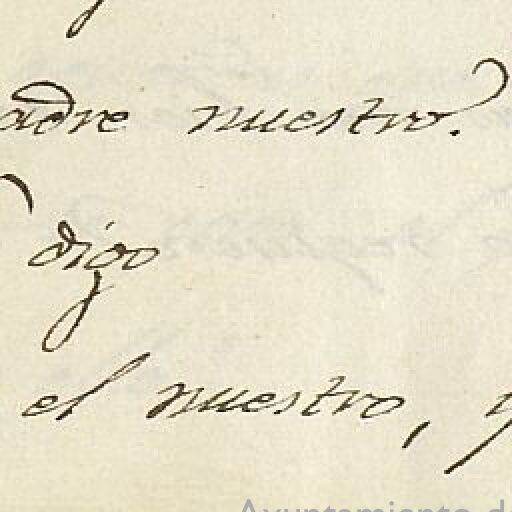 adre nuestro?
digo
el nuestro, y
Ayuntamiento de